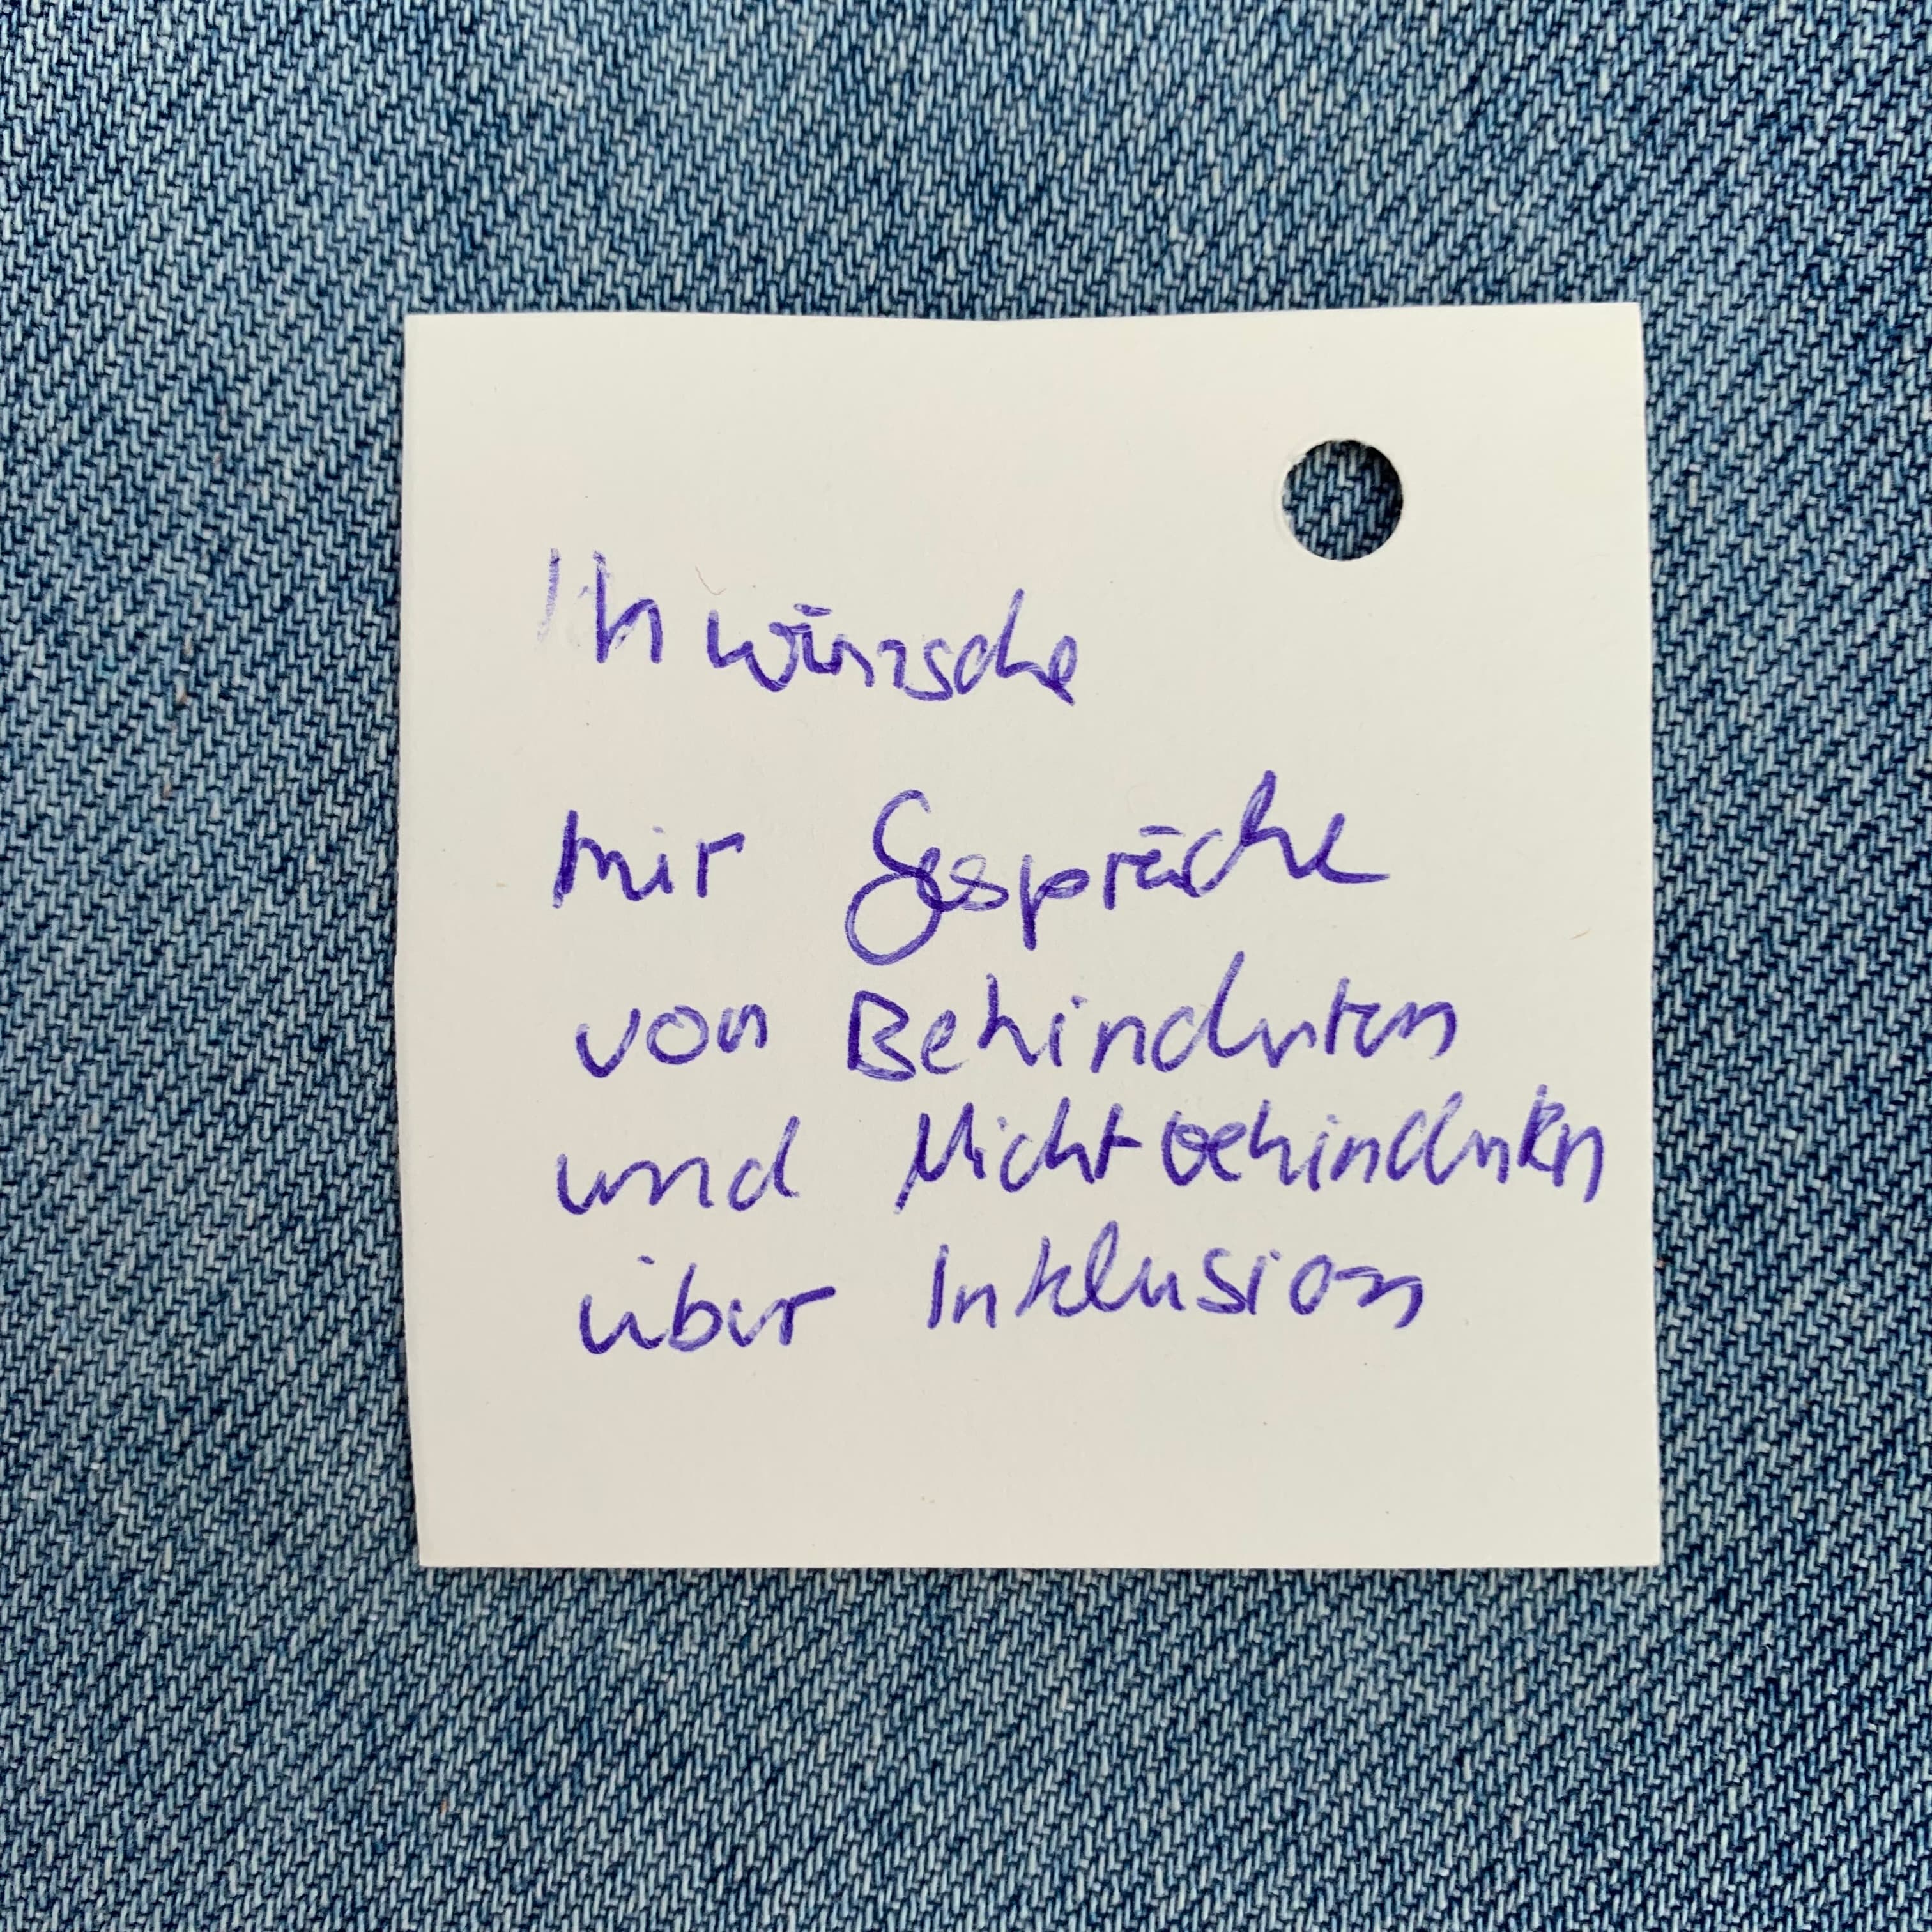 Ich wünsche
mir Gespräche
von Behinderten
und Nichtbehinderten
über Inklusion